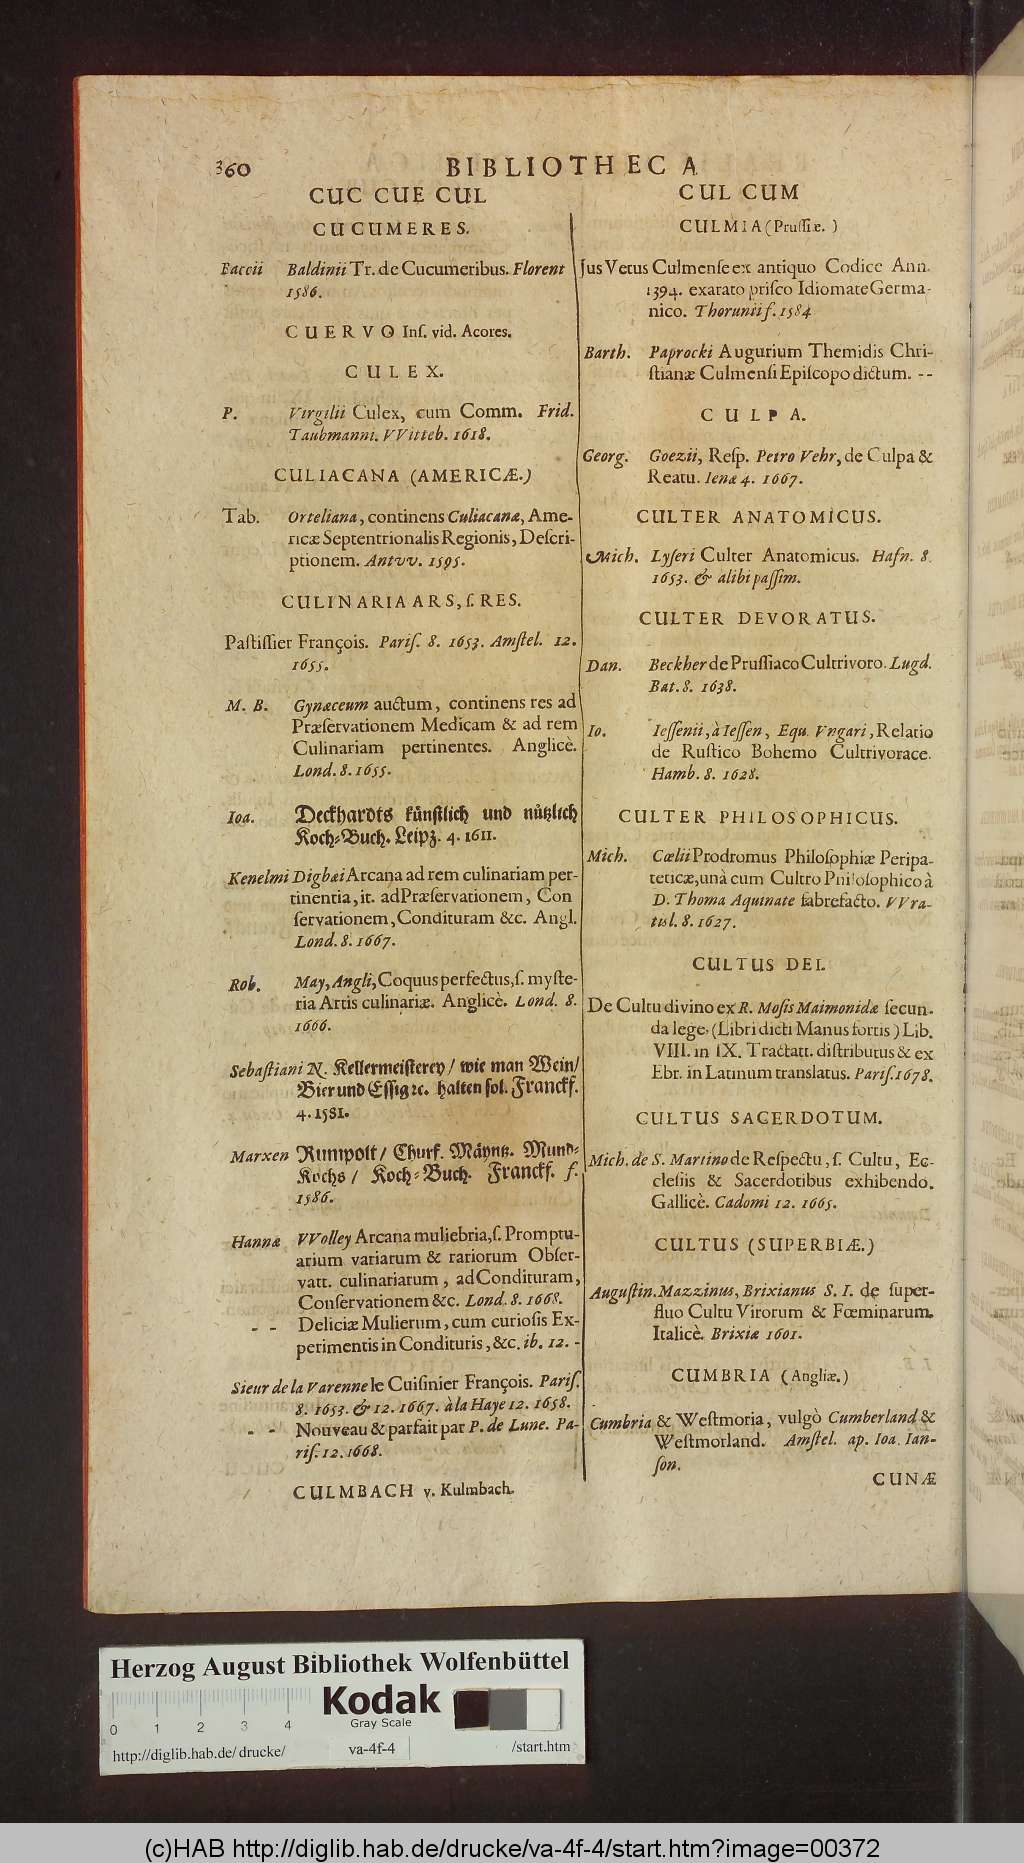 360
BIBLIOTHECA
CUC CUE CUL
CUCUMERES.
Baccii Baldinii Tr. de Cucumeribus. Florent
1586.
CUERVO Inſ. vid. Acores.
CULEX.
P. Virgilii Culex, cum Comm. Frid.
Taubmanni. VVitteb. 1618.
CULIACANA (AMERICÆ.)
Tab. Orteliana, continens Culiacanæ, Ame-
ricæ Septentrionalis Regionis, Deſcri-
ptionem. Antvv. 1595.
CULINARIA ARS, ſ. RES.
Paſtiſſier François. Pariſ. 8. 1653. Amſtel. 12.
1655.
M. B. Gynæceum auctum, continens res ad
Præſervationem Medicam & ad rem
Culinariam pertinentes. Anglicè.
Lond. 8. 1655.
Ioa. Deckhardts künſtlich und nützlich
Koch-Buch. Leipz. 4. 1611.
Kenelmi Digbæi Arcana ad rem culinariam per-
tinentia, it. ad Præſervationem, Con
ſervationem, Condituram &c. Angl.
Lond. 8. 1667.
Rob. May, Angli, Coquus perfectus, ſ. myſte-
ria Artis culinariæ. Anglicè. Lond. 8.
1666.
Sebaſtiani N. Kellermeiſterey / wie man Wein/
Bier und Eſſig ꝛc. halten ſol. Franckf.
4. 1581.
Marxen Rumpolt / Churf. Mäyntz. Mund-
Kochs / Koch-Buch. Franckf. f.
1586.
Hannæ VVolley Arcana muliebria, ſ. Promptu-
arium variarum & rariorum Obſer-
vatt. culinariarum, ad Condituram,
Conſervationem &c. Lond. 8. 1668.
- - Deliciæ Mulierum, cum curioſis Ex-
perimentis in Condituris, &c. ib. 12. -
Sieur de la Varenne le Cuiſinier François. Pariſ.
8. 1653. & 12. 1667. à la Haye 12. 1658.
- - Nouveau & parfait par P. de Lune. Pa-
riſ. 12. 1668.
CULMBACH v. Kulmbach.
CUL CUM
CULMIA (Pruſſiæ.)
Jus Vetus Culmenſe ex antiquo Codice Ann.
1394. exarato priſco Idiomate Germa-
nico. Thorunii f. 1584
Barth. Paprocki Augurium Themidis Chri-
ſtianæ Culmenſi Epiſcopo dictum. --
CULPA.
Georg. Goezii, Reſp. Petro Vehr, de Culpa &
Reatu. Ienæ 4. 1667.
CULTER ANATOMICUS.
Mich. Lyſeri Culter Anatomicus. Hafn. 8.
1653. & alibi paſſim.
CULTER DEVORATUS.
Dan. Beckher de Pruſſiaco Cultrivoro. Lugd.
Bat. 8. 1638.
Io. Ieſſenii, à Ieſſen, Equ. Vngari, Relatio
de Ruſtico Bohemo Cultrivorace.
Hamb. 8. 1628.
CULTER PHILOSOPHICUS.
Mich. Cœlii Prodromus Philoſophiæ Peripa-
teticæ, unà cum Cultro Philoſophico à
D. Thoma Aquinate fabrefacto. VVra-
tisl. 8. 1627.
CULTUS DEI.
De Cultu divino ex R. Moſis Maimonidæ ſecun-
da lege. (Libri dicti Manus fortis) Lib.
VIII. in IX. Tractatt. diſtributus & ex
Ebr. in Latinum translatus. Pariſ. 1678.
CULTUS SACERDOTUM.
Mich. de S. Martino de Reſpectu, ſ. Cultu, Ec-
cleſiis & Sacerdotibus exhibendo.
Gallicè. Cadomi 12. 1665.
CULTUS (SUPERBIÆ.)
Auguſtin. Mazzinus, Brixianus S. I. de ſuper-
fluo Cultu Virorum & Fœminarum.
Italicè. Brixiæ 1601.
CUMBRIA (Angliæ.)
Cumbria & Weſtmoria, vulgò Cumberland &
Weſtmorland. Amſtel. ap. Ioa. Ian-
ſon.
CUNÆ
Herzog August Bibliothek Wolfenbüttel
Kodak
Gray Scale
0 1 2 3 4
http://diglib.hab.de/drucke/ va-4f-4 /start.htm
(c)HAB http://diglib.hab.de/drucke/va-4f-4/start.htm?image=00372